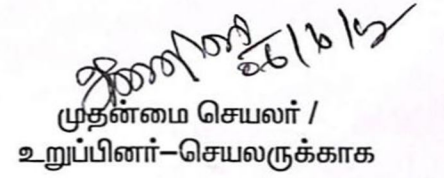 முதன்மை செயலர் /
உறுப்பினர்–செயலருக்காக